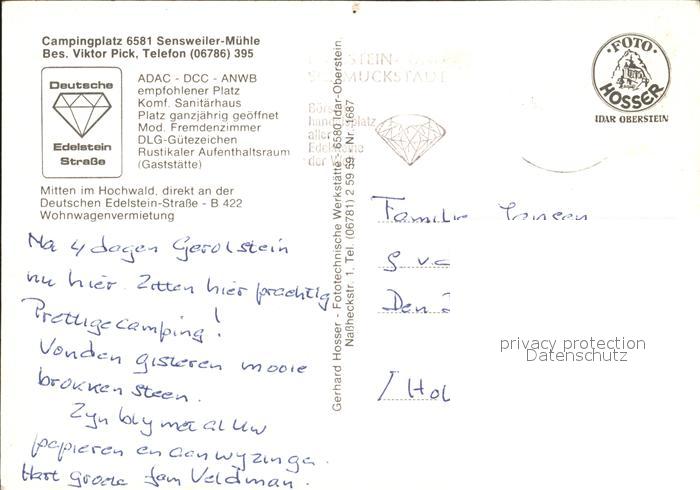 Campingplatz 6581 Sensweiler-Mühle
Bes. Viktor Pick, Telefon (06786) 395
Deutsche
Edelstein
Straße
ADAC - DCC - ANWB
empfohlener Platz
Komf. Sanitärhaus
Platz ganzjährig geöffnet
Mod. Fremdenzimmer
DLG-Gütezeichen
Rustikaler Aufenthaltsraum
(Gaststätte)
Mitten im Hochwald, direkt an der
Deutschen Edelstein-Straße - B 422
Wohnwagenvermietung
Na 4 dagen Gerolstein
nu hier. Zitten hier prachtig
Prettige camping!
Vonden gisteren mooie
brokken steen.
Zyn bly met al Uw
papieren en aanwyzinge.
Hart groete fam Veldman.
Gerhard Hosser - Fototechnische Werkstätte - 6580 Idar-Oberstein
Naßheckstr. 1, Tel. (06781) 2 59 59 - Nr. 1687
SCHMUCKSTADT
FOTO
HOSSER
IDAR OBERSTEIN
Familie Jansen
Den
/ Hol
privacy protection
Datenschutz